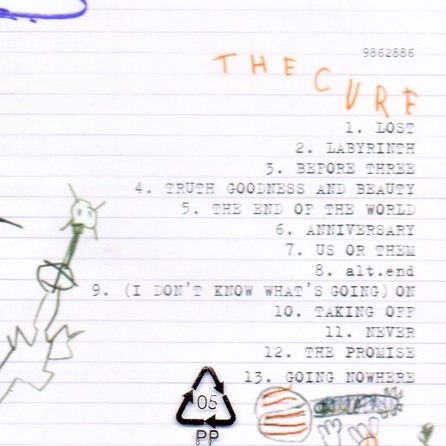 9862886
THE CURE
1. LOST
2. LABYRINTH
3. BEFORE THREE
4. TRUTH GOODNESS AND BEAUTY
5. THE END OF THE WORLD
6. ANNIVERSARY
7. US OR THEM
8. alt.end
9. (I DON'T KNOW WHAT'S GOING) ON
10. TAKING OFF
11. NEVER
12. THE PROMISE
13. GOING NOWHERE
05
PP